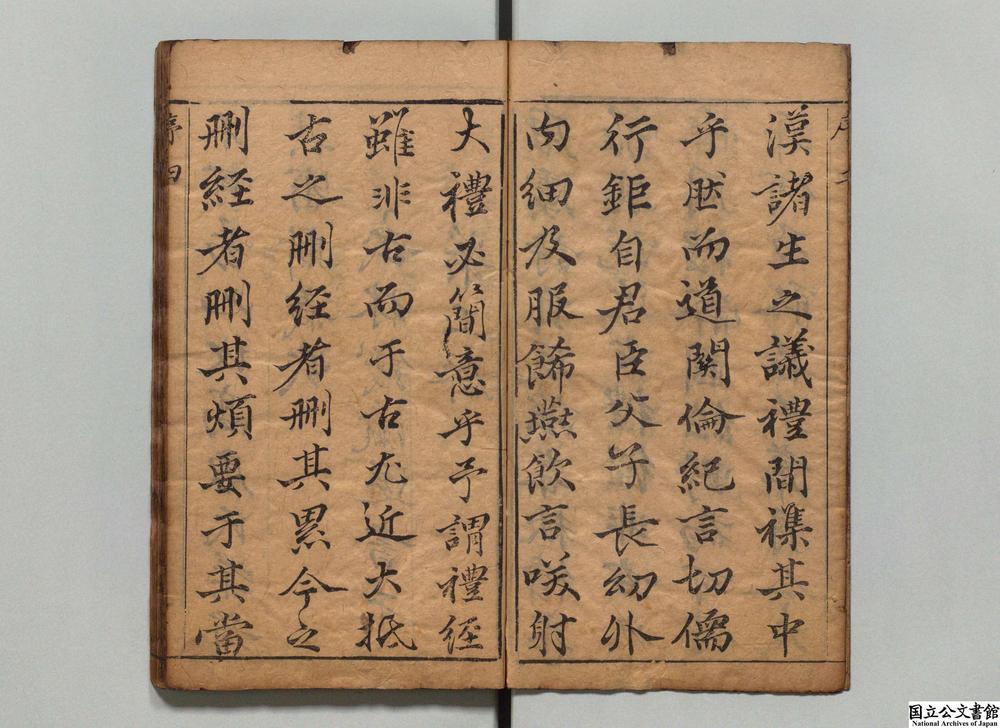 漢諸生之議禮間襍其中
乎肰而道関倫紀言切儒
行鉅自君臣父子長幼外
内細及服餙燕飲言咲射
大禮必簡意乎予謂禮经
雖非古而于古尤近大抵
古之删经者删其累今之
删经者删其煩要于其當
序四
国立公文書館
National Archives of Japan